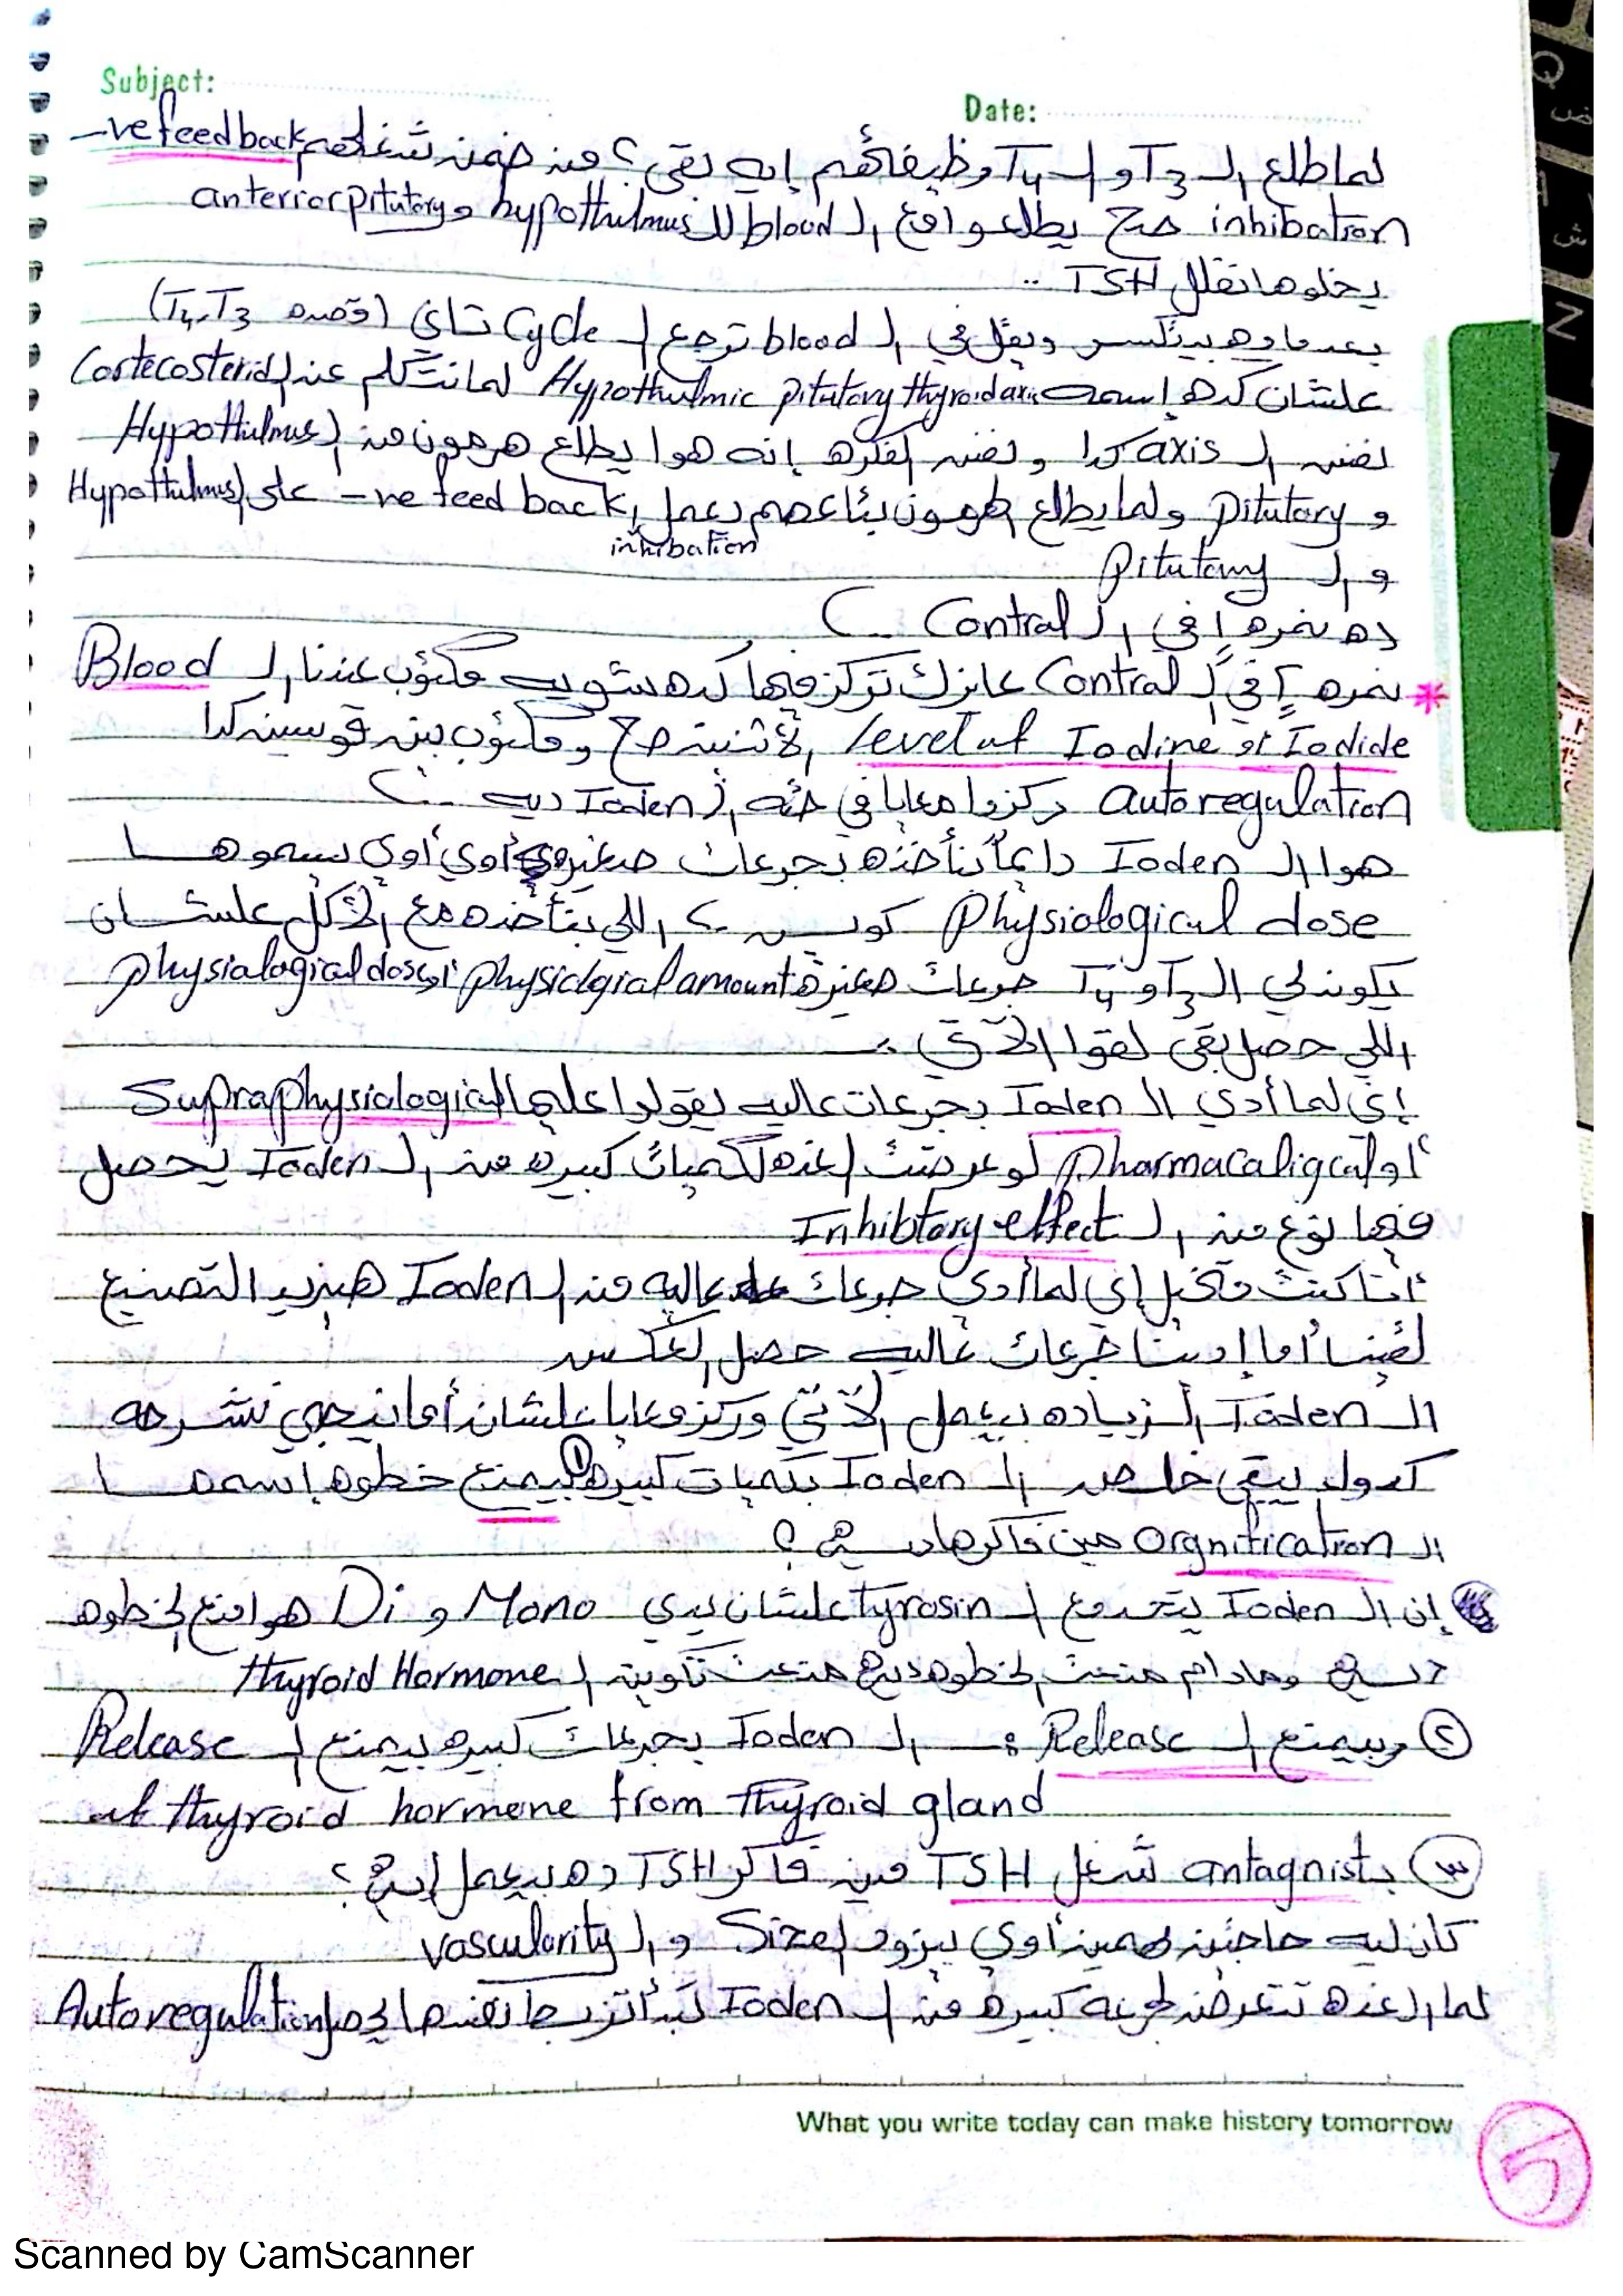 Subject:
Date:
لما طلع الـ T3 و الـ T4 وظيفاتهم إيه بقى؟ من ضمن شغلهم -ve feedback
inhibation صح يطلعوا مع الـ blood للـ hypothulmus و anterior pitutory
يخلوها تقلل TSH ..
بعد ما ده بيتكسر ويقل في الـ blood ترجع الـ Cycle تاني (قصده T4, T3)
علشان كده إسمه Hypothulmic pitutory thyroid axis لما نتكلم عن الـ Cortecosterids
نفس الـ axis كدا و نفس الفكره إنه هوا يطلع هرمون من الـ Hypothulmus
و pitutory ولما يطلع الهرمون بتاعهم يعمل -ve feed back على الـ Hypothulmus
inhibation
و الـ pitutory
ده نمره ١ في الـ Contral
* نمره ٢ في الـ Contral عايزك تركز فيها كده شويه مكتوب عندنا الـ Blood
level of Iodine or Iodide الأتنين صح ومكتوب بين قوسين كدا
autoregulation ركزوا معايا في حته الـ Ioden ديه
هوا الـ Ioden دايماً بنأخذه بجرعات صغيره أوي أوي بيسموها
physiological dose كويس ؟ اللي بنأخذه مع الأكل علشان
يكون لي الـ T3 و T4 جرعات صغيرة physiolgial amount أو physialagial dose
اللي حصل بقى لقوا الآتي :
إني لما أدي الـ Ioden بجرعات عاليه يقولوا عليها Supraphysiological
أو pharmacaligcal لو عرضت الغده لكميات كبيره من الـ Ioden يحصل
فيها نوع من الـ Inhibtory effect
أنا كنت متخيل إني لما أدي جرعات عاليه من الـ Ioden هيزيد التصنيع
لقينا أما إدينا جرعات عاليه حصل العكس
الـ Ioden الزياده بيعمل الآتي وركزو معايا علشان أما نيجي نشرحه
كدول يبقى خلاص الـ Ioden بكميات كبيره ① بيمنع خطوه إسمها
الـ Orgnification مين فاكرها ديه ؟
إن الـ Ioden يتحد مع الـ tyrosin علشان يدي Mono و Di هو امنع الخطوه
ديه ومادام منعت الخطوه ديه منعت تكوين الـ thyroid Hormone
② وبيمنع الـ Release : الـ Ioden بجرعات كبيره بيمنع الـ Release
of thyroid hormone from thyroid gland
③ بـ antagnist شغل TSH مين فاكر TSH ده بيعمل إيه ؟
كان ليه حاجتين مهمين أوي بيزود الـ Size و الـ vascularity
لما الغده تتعرض لجرعه كبيره من الـ Ioden تبدأ تزبط نفسها يحصل Autoregulation
What you write today can make history tomorrow
5
Scanned by CamScanner